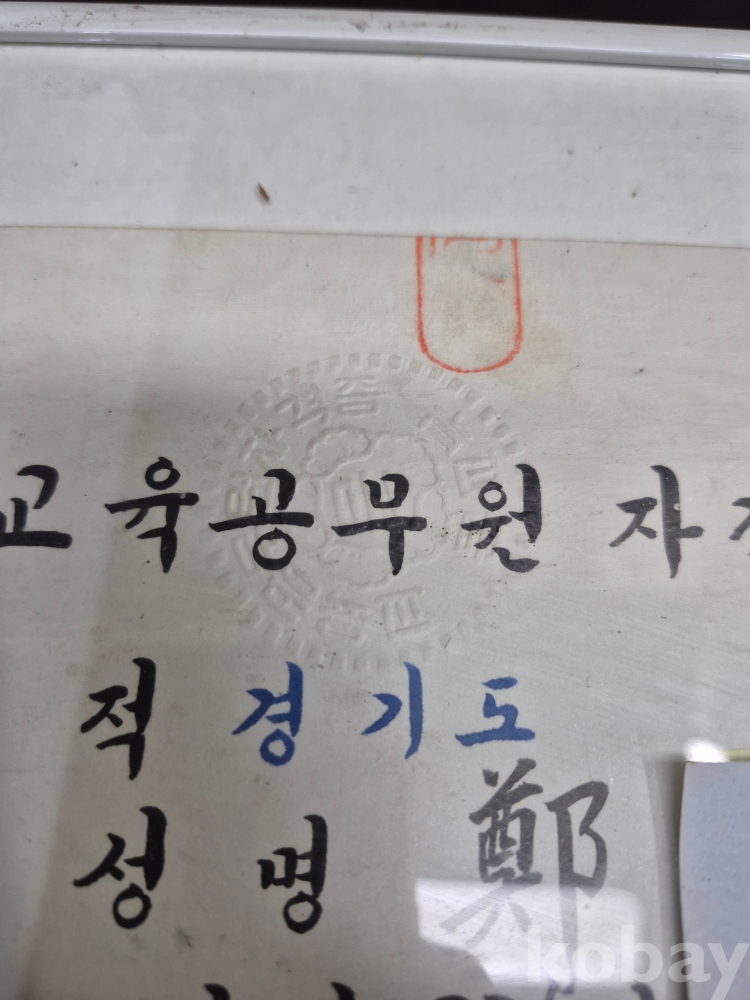 교육공무원 자
적 경기도
성명 鄭
kobay